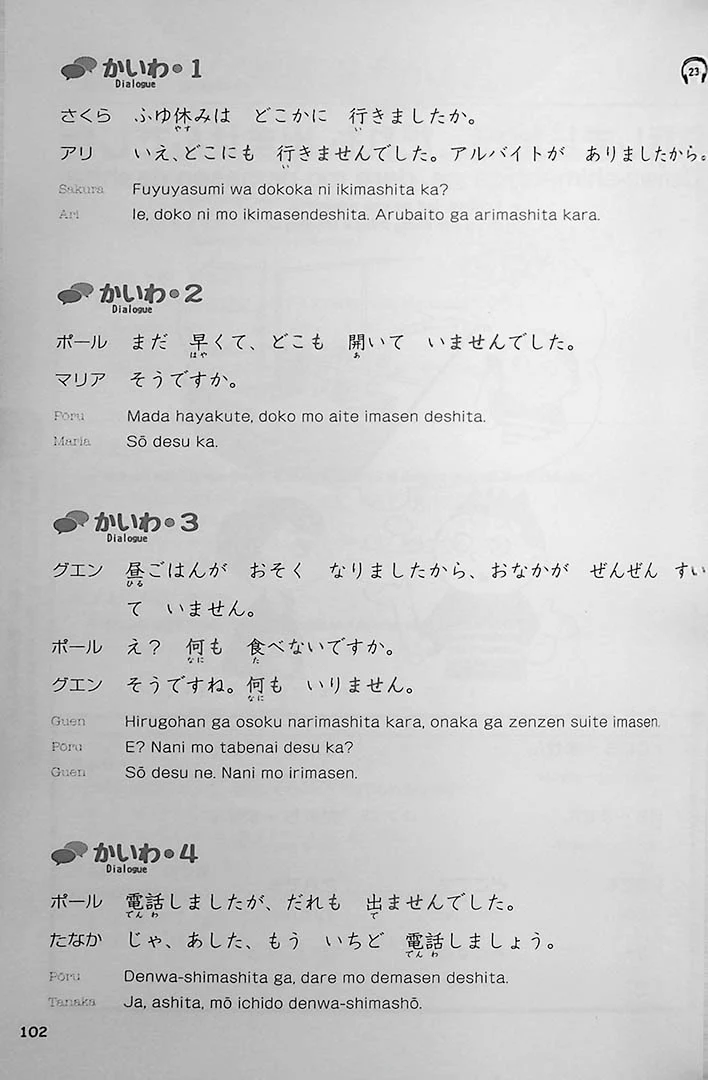 かいわ・1
Dialogue
23
さくら ふゆ休みは どこかに 行きましたか。
やす い
アリ いえ、どこにも 行きませんでした。アルバイトが ありましたから。
い
Sakura Fuyuyasumi wa dokoka ni ikimashita ka?
Ari Ie, doko ni mo ikimasendeshita. Arubaito ga arimashita kara.
かいわ・2
Dialogue
ポール まだ 早くて、どこも 開いて いませんでした。
はや あ
マリア そうですか。
Pōru Mada hayakute, doko mo aite imasen deshita.
Maria Sō desu ka.
かいわ・3
Dialogue
グエン 昼ごはんが おそく なりましたから、おなかが ぜんぜん すい
ひる
て いません。
ポール え? 何も 食べないですか。
なに た
グエン そうですね。何も いりません。
なに
Guen Hirugohan ga osoku narimashita kara, onaka ga zenzen suite imasen.
Pōru E? Nani mo tabenai desu ka?
Guen Sō desu ne. Nani mo irimasen.
かいわ・4
Dialogue
ポール 電話しましたが、だれも 出ませんでした。
でんわ で
たなか じゃ、あした、もう いちど 電話しましょう。
でんわ
Pōru Denwa-shimashita ga, dare mo demasen deshita.
Tanaka Ja, ashita, mō ichido denwa-shimashō.
102